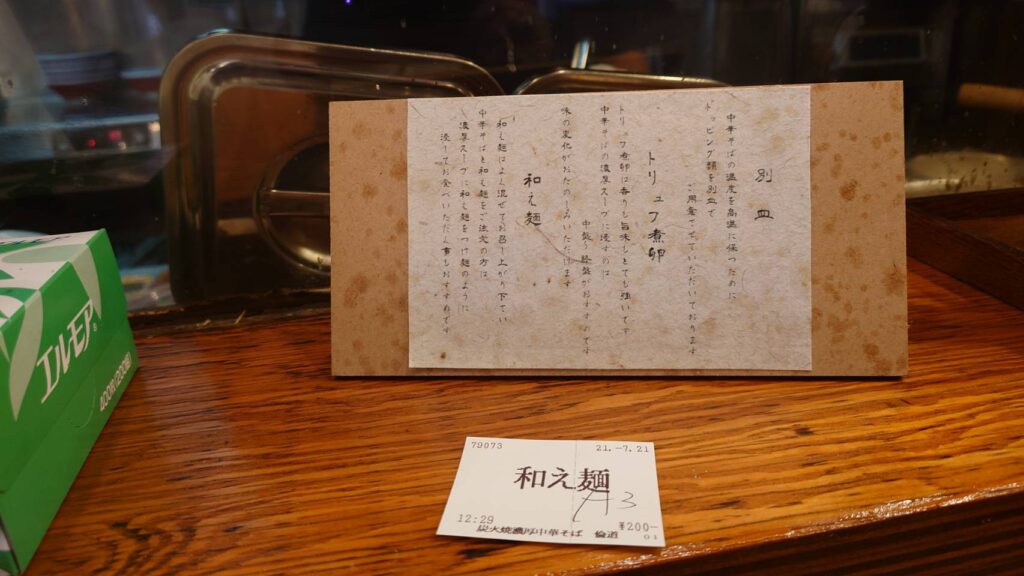 別皿
中華そばの温度を高温に保つために
トッピング類を別皿で
ご用意させていただいております
トリュフ煮卵
トリュフ煮卵は香りも旨味もとても強いです
中華そばの濃厚スープに浸すのは
中盤〜終盤がおすすめです
味の変化がおたのしみいただけます
和え麺
和え麺はよく混ぜてお召し上がり下さい
中華そばと和え麺をご注文の方は
濃厚スープに和え麺をつけ麺のように
浸してお食べいただく事もおすすめです
エルモア
79073
21.-7.21
和え麺
A3
12:29
¥200-
炭火焼濃厚中華そば 倫道
01